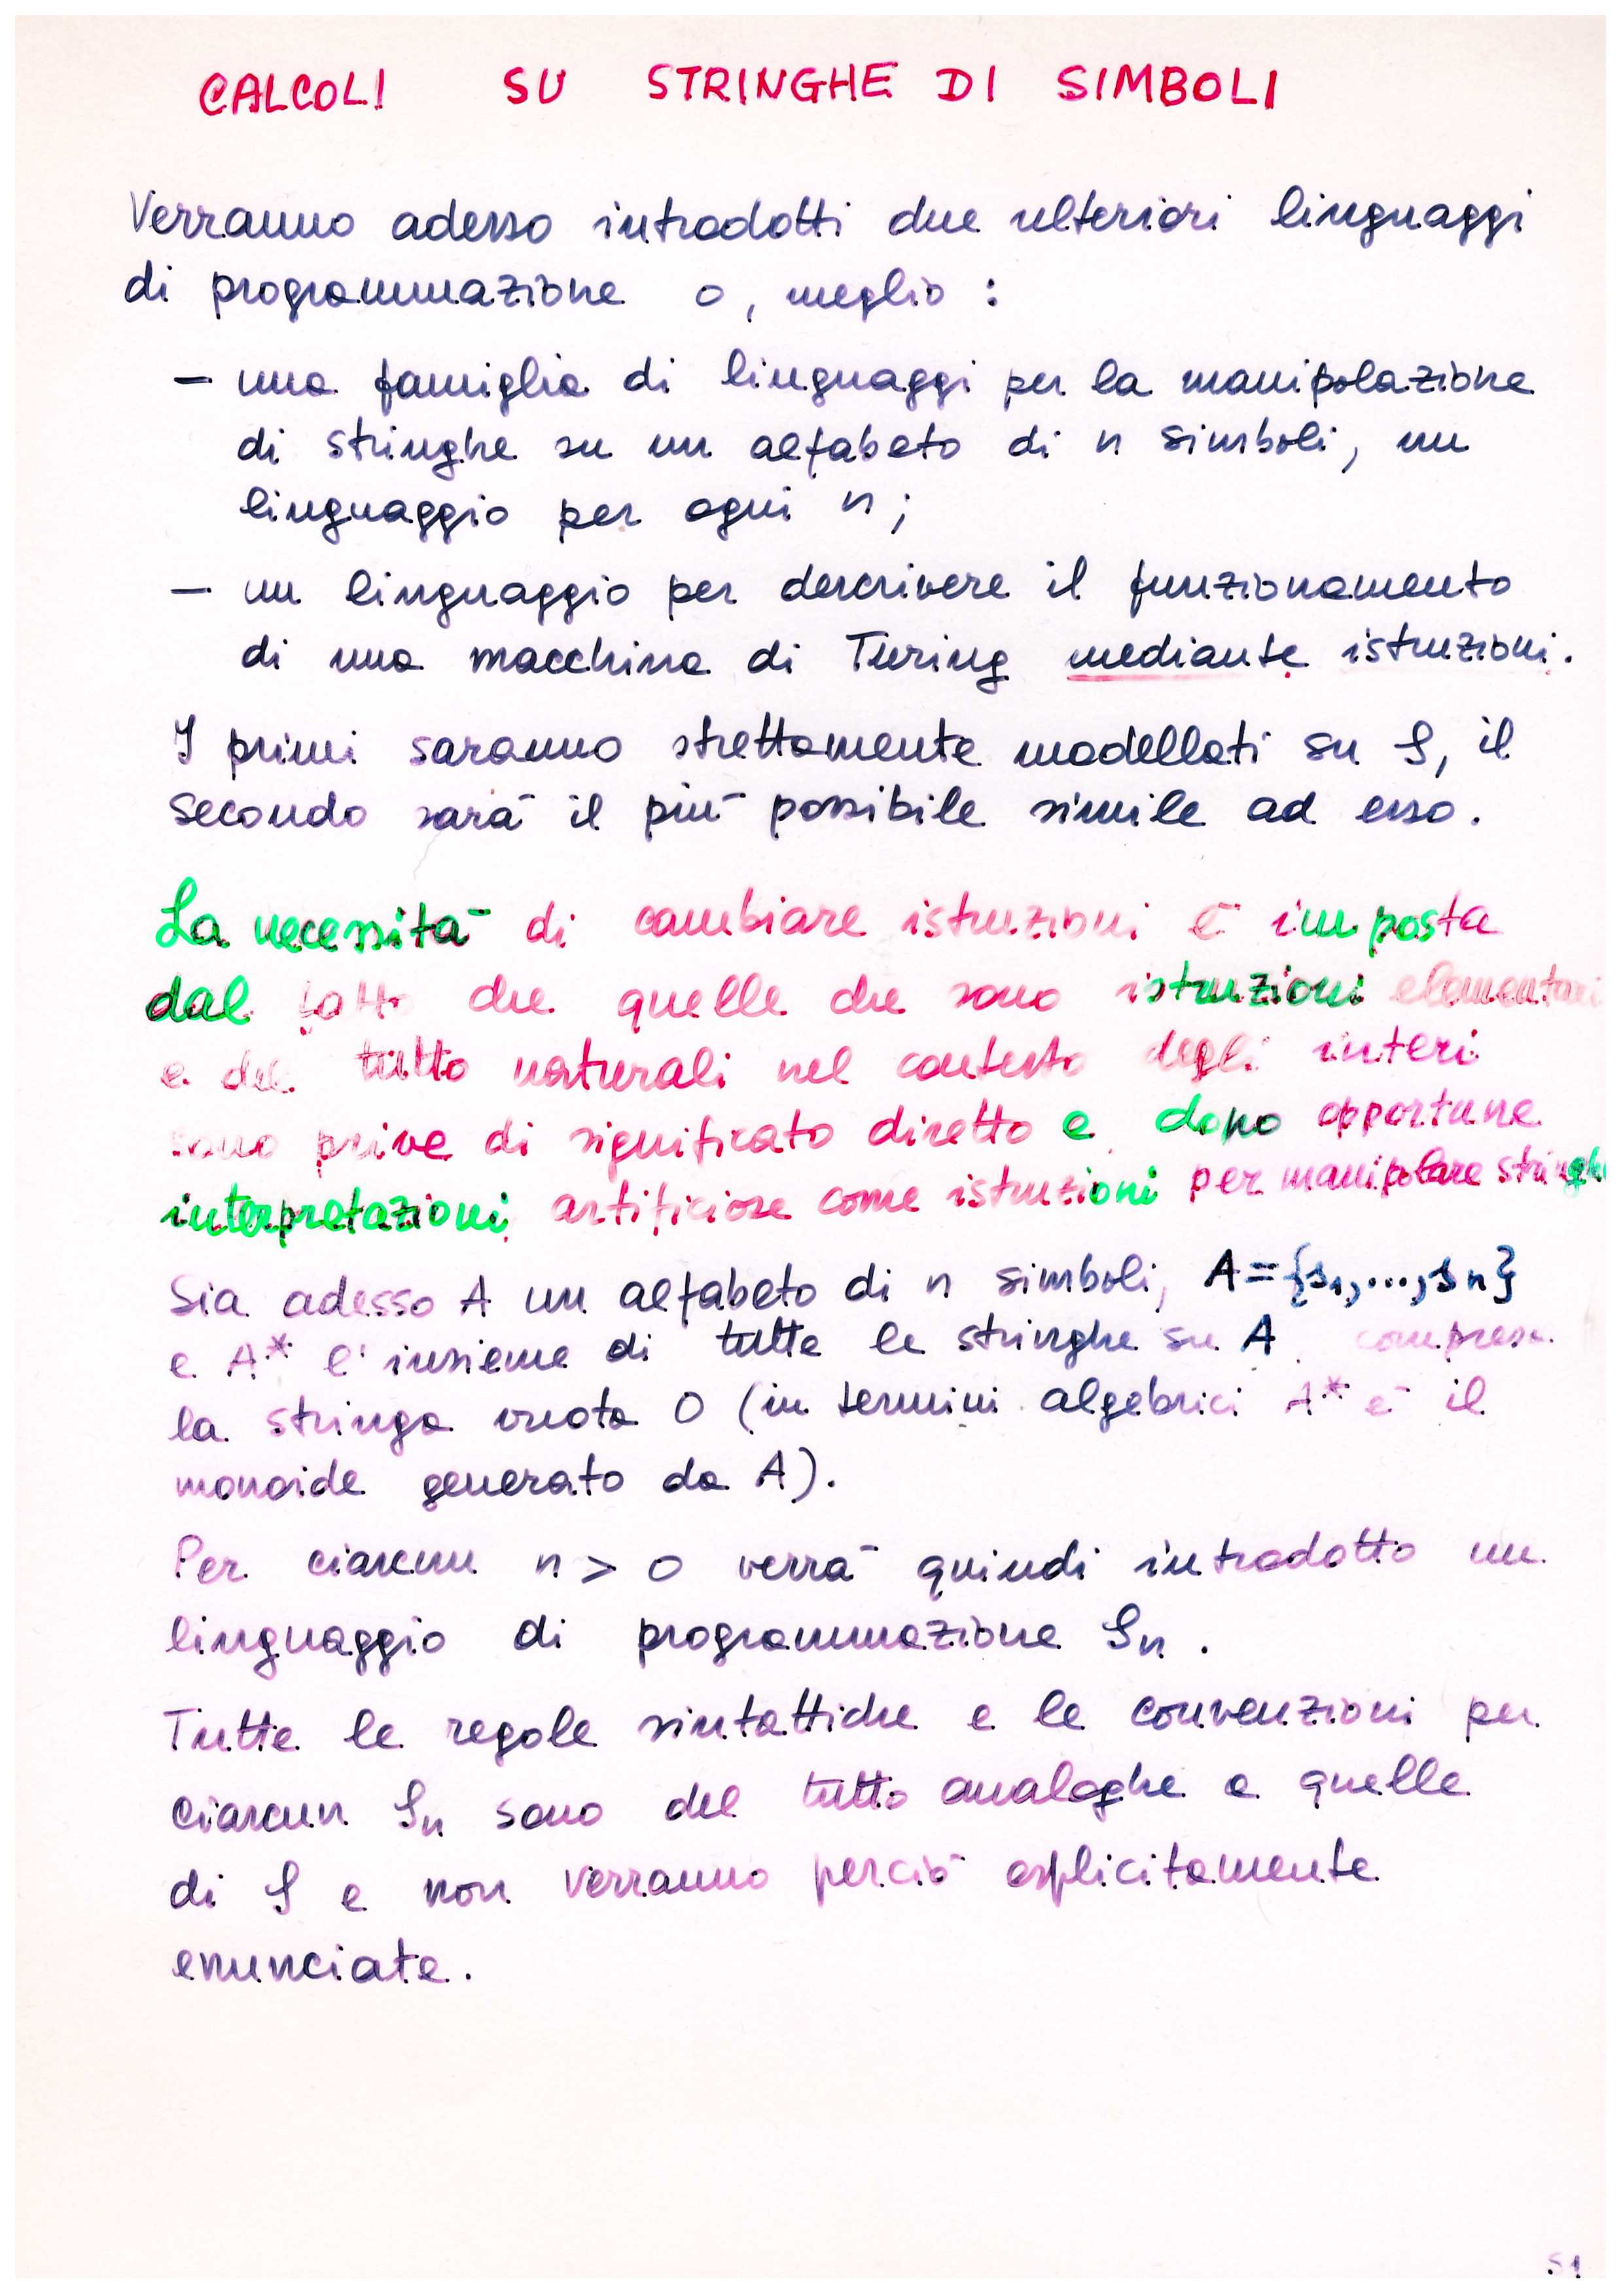 CALCOLI SU STRINGHE DI SIMBOLI
Verranno adesso introdotti due ulteriori linguaggi
di programmazione o, meglio :
– una famiglia di linguaggi per la manipolazione
di stringhe su un alfabeto di n simboli, un
linguaggio per ogni n ;
– un linguaggio per descrivere il funzionamento
di una macchina di Turing mediante istruzioni.
I primi saranno strettamente modellati su S, il
secondo sarà il più possibile simile ad esso.
La necessità di cambiare istruzioni è imposta
dal fatto che quelle che sono istruzioni elementari
e del tutto naturali nel contesto degli interi
sono prive di significato diretto e dopo opportune
interpretazioni artificiose come istruzioni per manipolare stringhe
Sia adesso A un alfabeto di n simboli, A={s₁,...,sₙ}
e A* l'insieme di tutte le stringhe su A, compresa
la stringa vuota 0 (in termini algebrici A* è il
monoide generato da A).
Per ciascun n > 0 verrà quindi introdotto un
linguaggio di programmazione Sₙ .
Tutte le regole sintattiche e le convenzioni per
ciascun Sₙ sono del tutto analoghe a quelle
di S e non verranno perciò esplicitamente
enunciate.
51